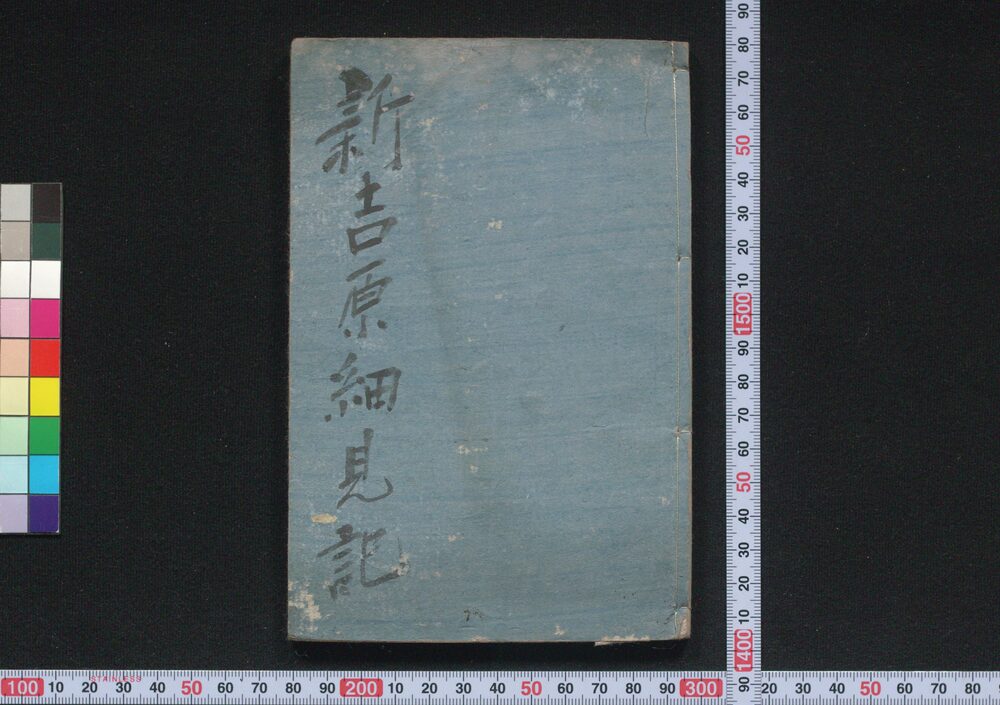 新吉原細見記
90
80
70
60
50
40
30
20
10
1500
90
80
70
60
50
40
30
20
10
1400
90
STAINLESS
100 10 20 30 40 50 60 70 80 90 200 10 20 30 40 50 60 70 80 90 300 20 30 40 50 60 70 80 90